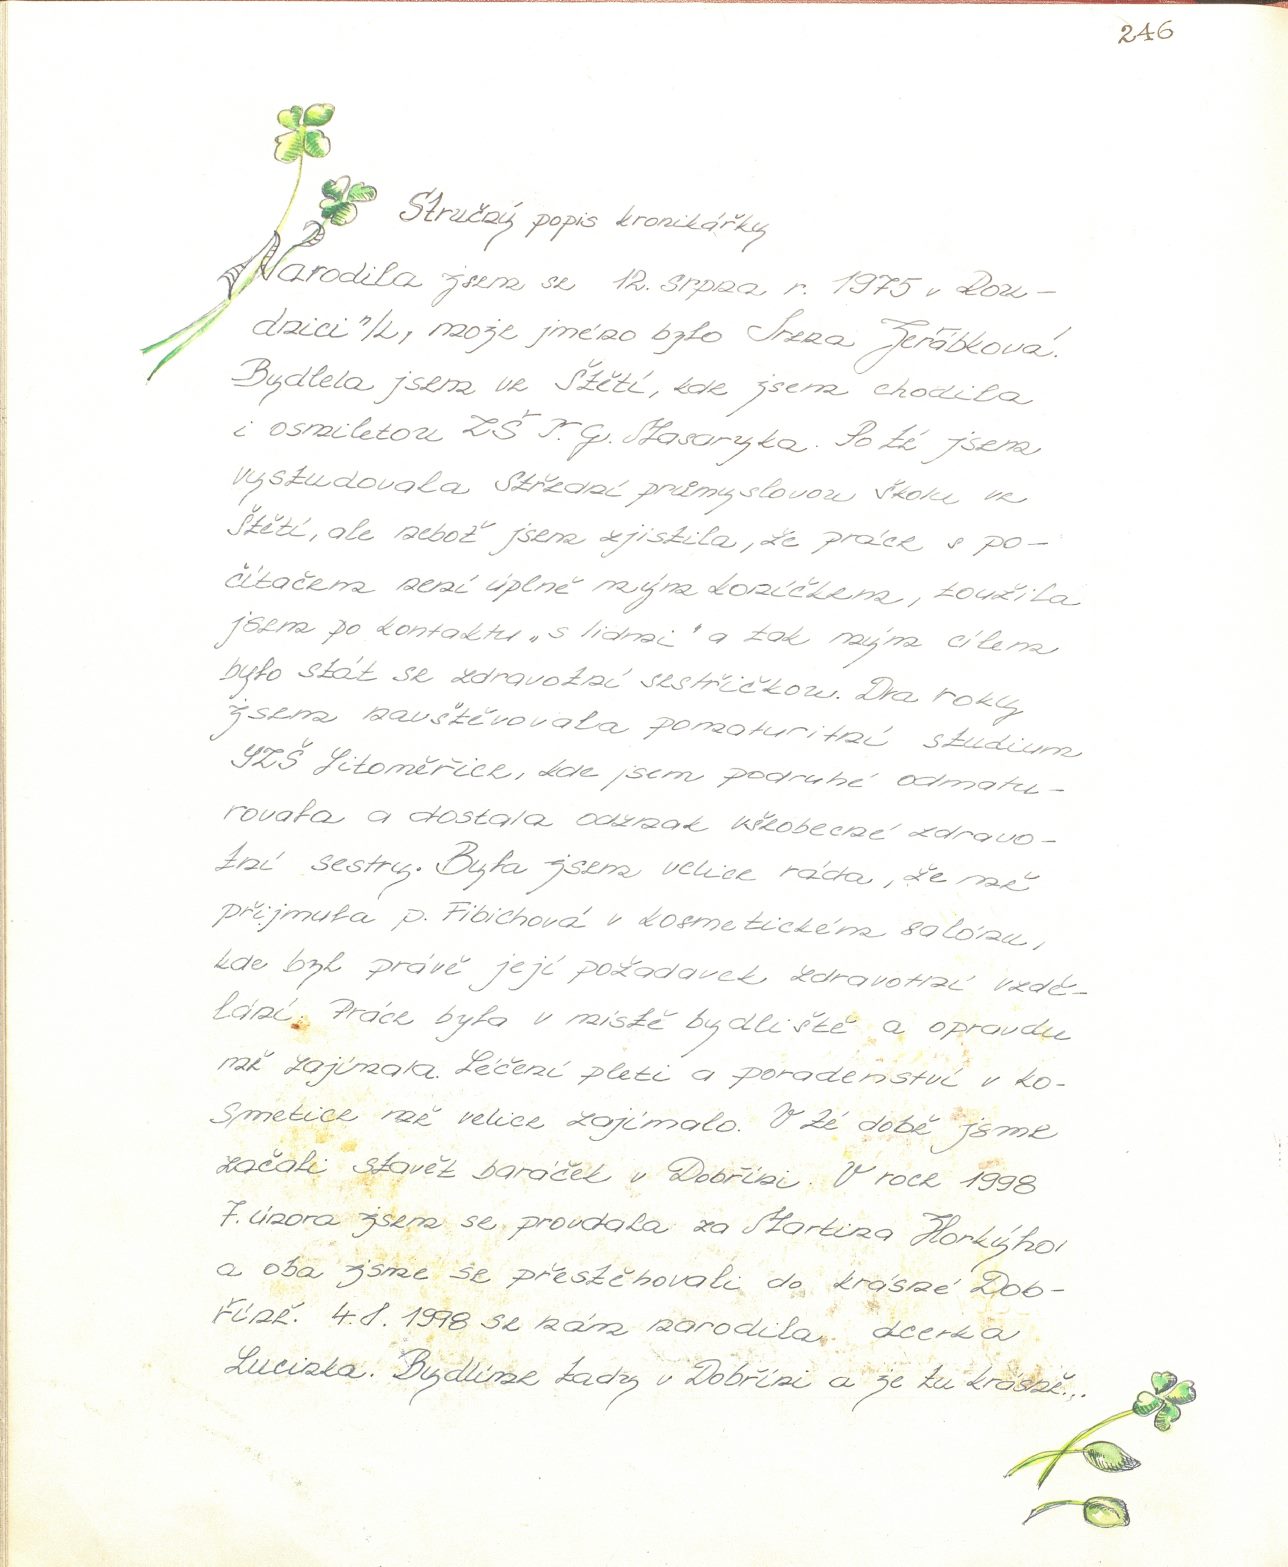 246
Stručný popis kronikářky
Narodila jsem se 12. srpna r. 1975 v Rou-
dnici n/L, moje jméno bylo Irena Jeřábková.
Bydlela jsem ve Štětí, kde jsem chodila
i osmiletou ZŠ T. G. Masaryka. Po té jsem
vystudovala Střední průmyslovou školu ve
Štětí, ale neboť jsem zjistila, že práce s po-
čítačem není úplně mým koníčkem, toužila
jsem po kontaktu „s lidmi" a tak mým cílem
bylo stát se zdravotní sestřičkou. Dva roky
jsem navštěvovala pomaturitní studium
SZŠ Litoměřice, kde jsem podruhé odmatu-
rovala a dostala odznak všeobecné zdravo-
tní sestry. Byla jsem velice ráda, že mě
přijmula p. Fibichová v kosmetickém salónu,
kde byl právě její požadavek zdravotní vzdě-
lání. Práce byla v místě bydliště a opravdu
mě zajímala. Léčení pleti a poradenství v ko-
smetice mě velice zajímalo. V té době jsme
začali stavět baráček v Dobříni. V roce 1998
7. února jsem se provdala za Martina Horkýho
a oba jsme se přestěhovali do krásné Dob-
říně. 4. 8. 1998 se nám narodila dcerka
Lucinka. Bydlíme tady v Dobříni a je tu krásně...